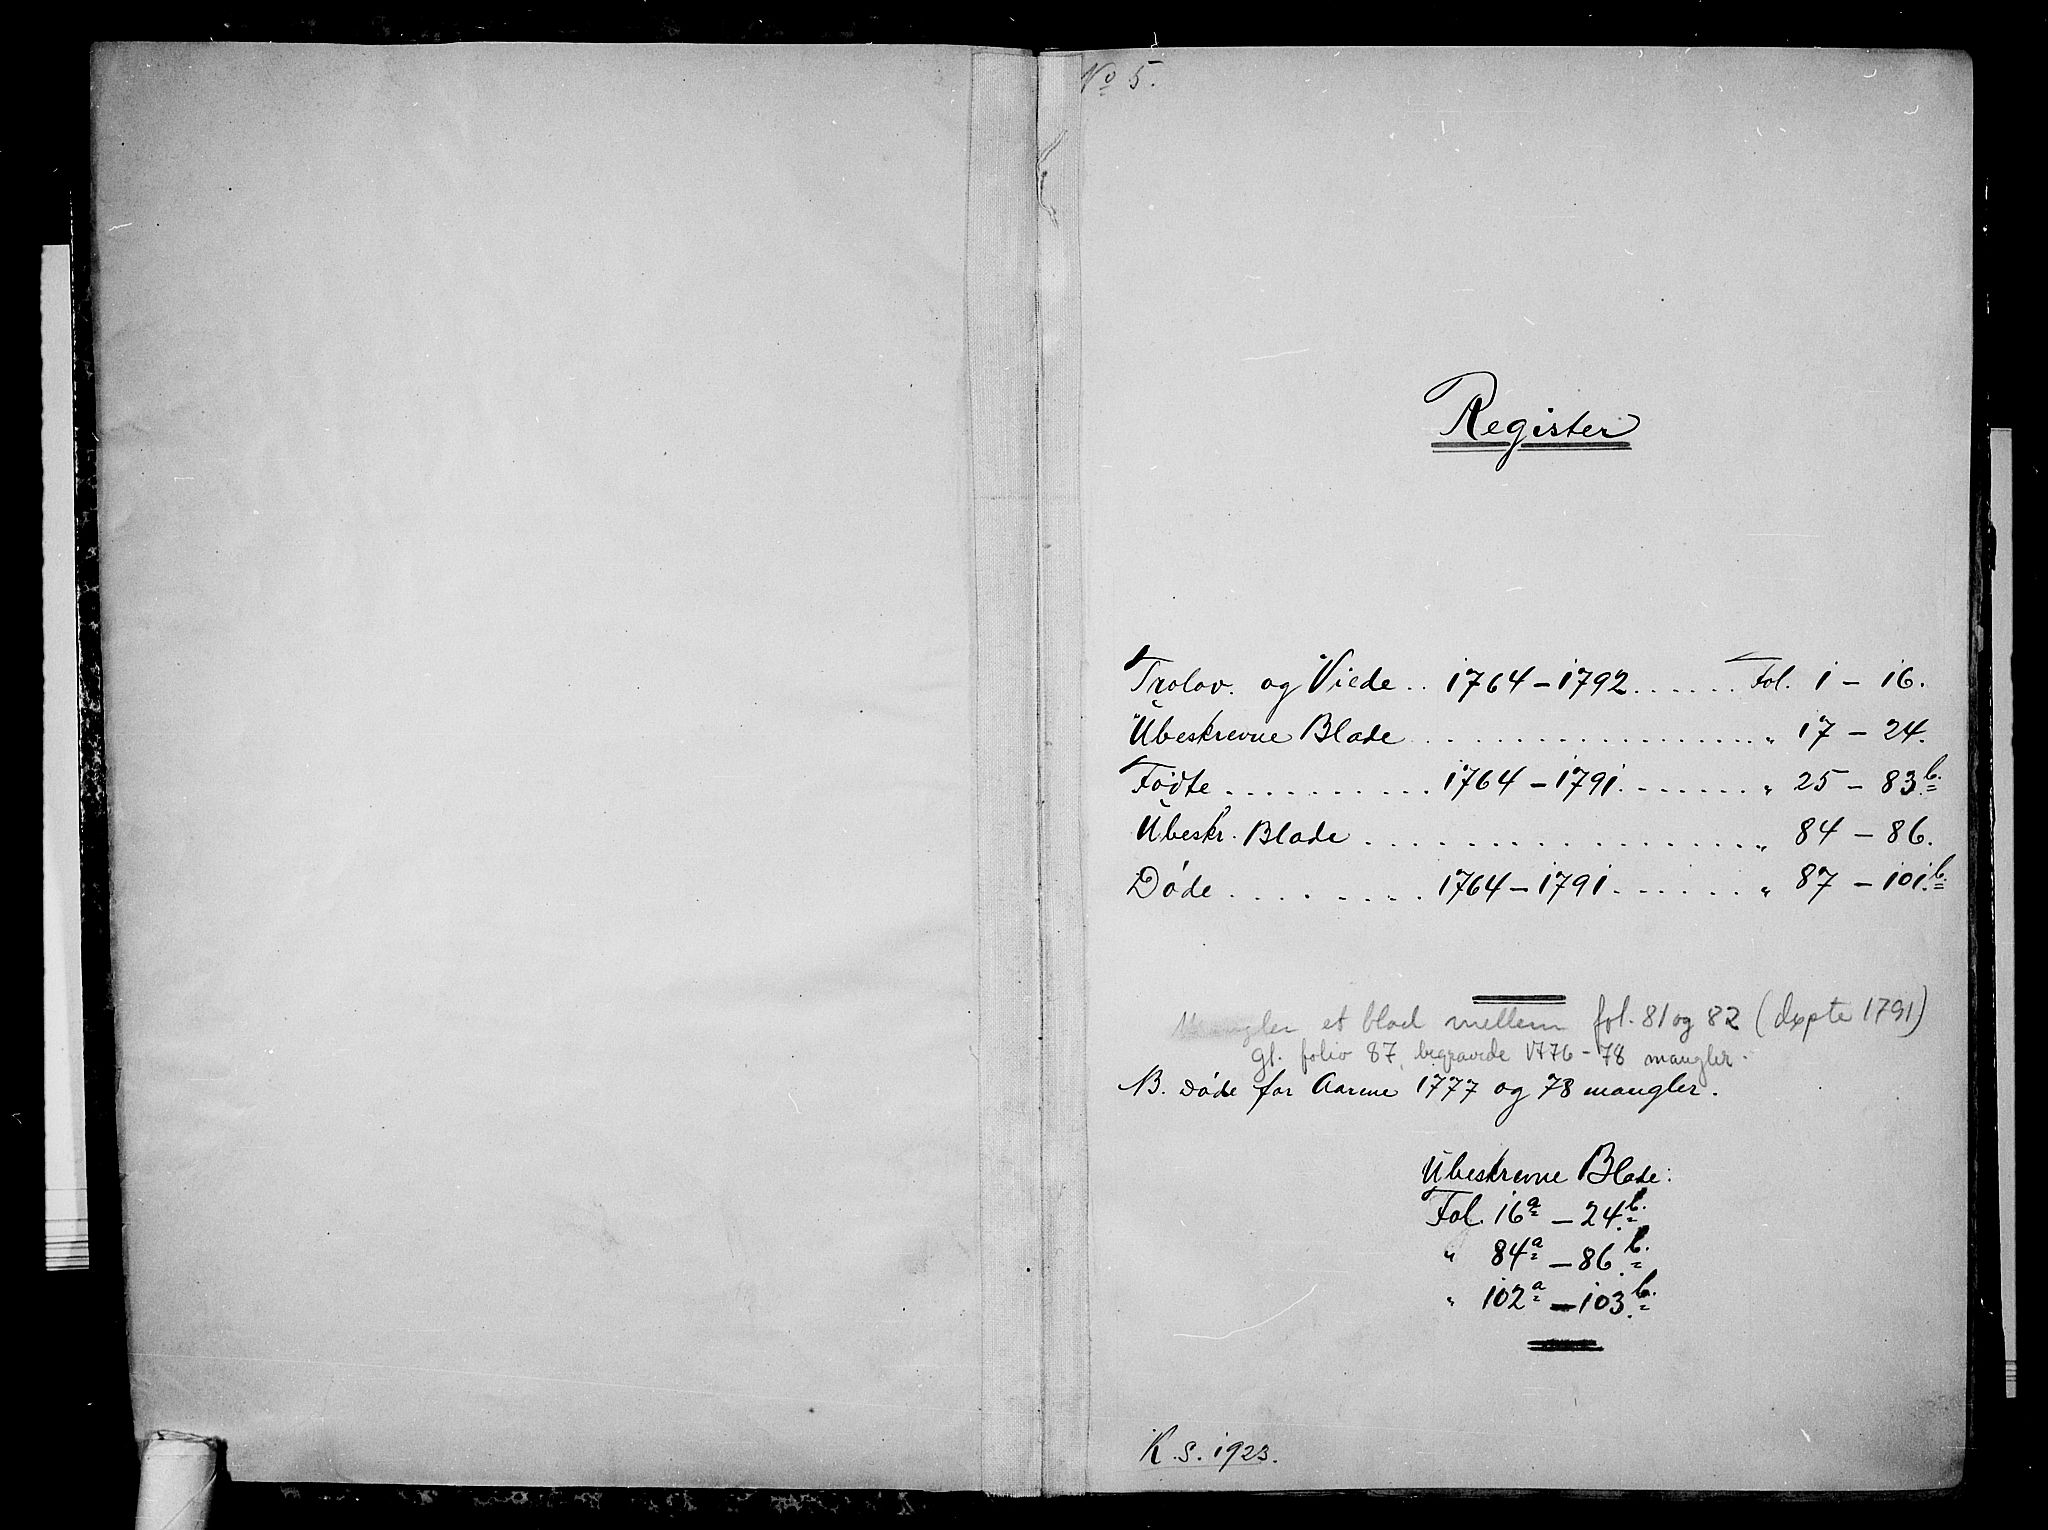 No 5.
Register
Trolov. og Viede .. 1764 – 1792 ...... Fol. 1 – 16.
Ubeskrevne Blade .................. " 17 – 24.
Fødte .......... 1764 – 1791 ....... " 25 – 83 b.
Ubeskr. Blade .................. " 84 – 86.
Døde ........ 1764 – 1791 ...... " 87 – 101 b.
Mangler et blad mellem fol. 81 og 82 (døpte 1791)
Gl. folio 87, begravede 1776 – 78 mangler.
NB. Døde for Aarene 1777 og 78 mangler.
Ubeskrevne Blade:
Fol. 16 a – 24 b.
" 84 a – 86 b.
" 102 a – 103 b.
K. S. 1923.